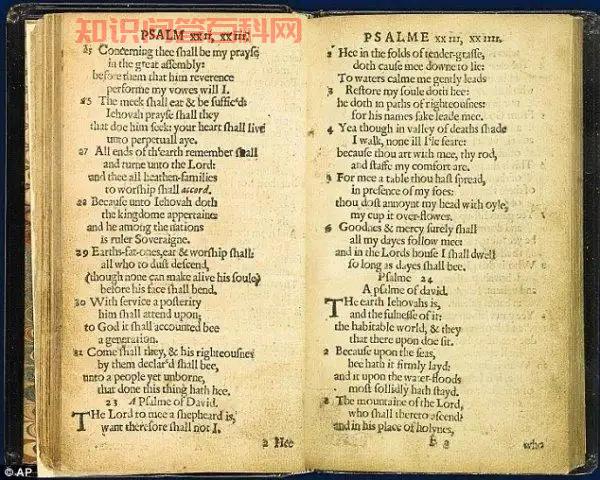 知识问答百科网
PSALM xxii, xxiii.
25 Concerning thee shall be my prayse
in the great assembly:
before them that him reverence
performe my vowes will I.
25 The meek shall eat & be suffic'd:
Iehovah prayse shall they
that doe him seek: your heart shall live
unto perpetuall aye.
27 All ends of th'earth remember shall
and turne unto the Lord:
and thee all heathen-families
to worship shall accord.
28 Because unto Iehovah doth
the kingdome appertaine:
and he among the nations
is ruler Soveraigne.
29 Earths-fat-ones, eat & worship shall:
all who to dust descend,
(though none can make alive his soule)
before his face shall bend.
30 With service a posterity
him shall attend upon;
to God it shall accounted bee
a generation.
31 Come shall they, & his righteousnes
by them declar'd shall bee,
unto a people yet unborne,
that done this thing hath hee.
23 A Psalme of David.
THe Lord to mee a shepheard is,
want therefore shall not I.
2 Hee
PSALME xxiii, xxiiii.
2 Hee in the folds of tender-grasse,
doth cause mee downe to lie:
To waters calme me gently leads
3 Restore my soule doth hee:
he doth in paths of righteousnes:
for his names sake leade mee.
4 Yea though in valley of deaths shade
I walk, none ill I'le feare:
because thou art with mee, thy rod,
and staffe my comfort are.
5 For mee a table thou hast spread,
in presence of my foes:
thou dost annoynt my head with oyle,
my cup it over-flowes.
6 Goodnes & mercy surely shall
all my dayes follow mee:
and in the Lords house I shall dwell
so long as dayes shall bee.
Psalme 24
A psalme of david.
THe earth Iehovahs is,
and the fulnesse of it:
the habitable world, & they
that there upon doe sit.
2 Because upon the seas,
hee hath it firmly layd:
and it upon the water-floods
most sollidly hath stayd.
3 The mountaine of the Lord,
who shall thereto ascend?
and in his place of holynes,
who
© AP